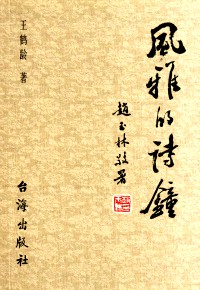 風雅的詩鐘
趙玉林敬署
王鹤龄 著
台海出版社